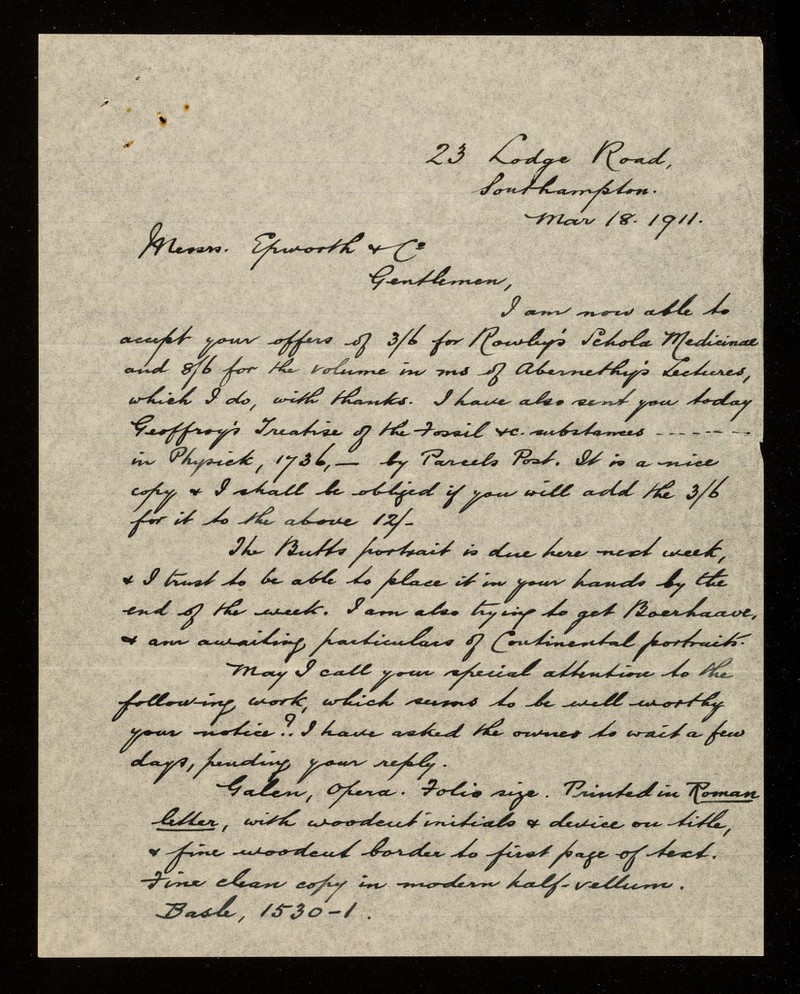 23 Lodge Road,
Southampton.
Mar 18. 1911.
Messrs. Epworth & Co
Gentlemen,
I am now able to
accept your offers of 3/6 for Rowley's Schola Medicinae
and 8/6 for the volume in ms of Abernethy's Lectures,
which I do, with thanks. I have also sent you today
Geoffroy's Treatise of the Fossil &c. substances - - - - - - -
in Physick, 1736, — by Parcels Post. It is a nice
copy & I shall be obliged if you will add the 3/6
for it to the above 12/-
The Butts portrait is due here next week,
& I trust to be able to place it in your hands by the
end of the week. I am also trying to get Boerhaave,
& am awaiting particulars of Continental portraits.
May I call your special attention to the
following work, which seems to be well worthy
your notice?. I have asked the owner to wait a few
days, pending your reply.
Galen, Opera. Folio size. Printed in Roman
letter, with woodcut initials & device on title,
& fine woodcut border to first page of text.
Fine clean copy in modern half-vellum.
Basle, 1530-1.